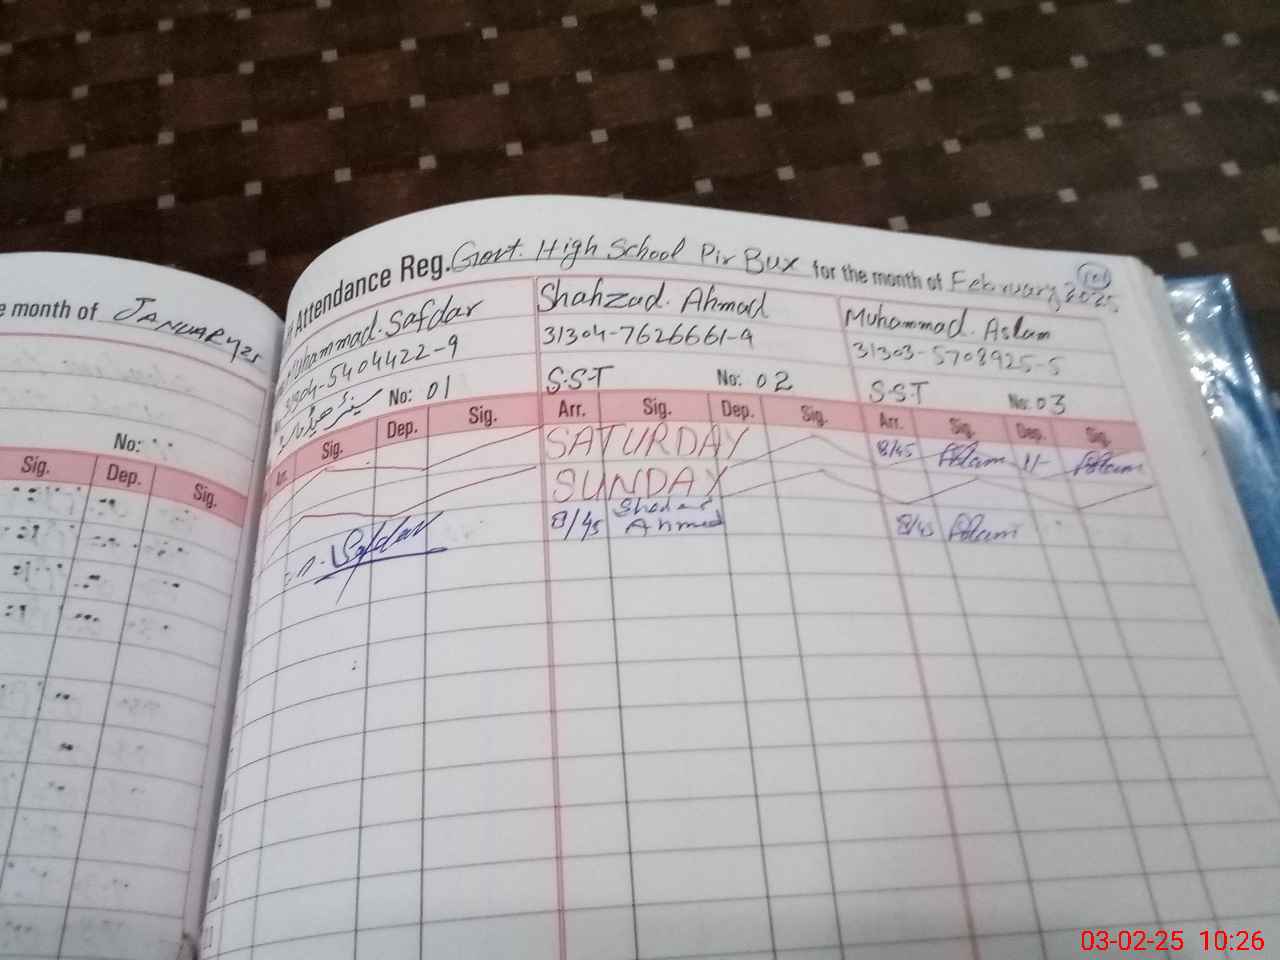 e month of JANUARY25
No:
Sig. Dep. Sig.
Attendance Reg. Govt. High School Pir Bux for the month of February 2025
Muhammad. Safdar
31304-5404422-9
No: 01
Arr. Sig. Dep. Sig.
Shahzad. Ahmad
31304-7626661-9
S.S.T No: 02
Arr. Sig. Dep. Sig.
SATURDAY
SUNDAY
8/45 Ahmad
Muhammad. Aslam
31303-5708925-5
S.S.T No: 03
Arr. Sig. Dep. Sig.
8/45 Aslam 11- Aslam
8/45 Aslam
Safdar
10
11
03-02-25 10:26